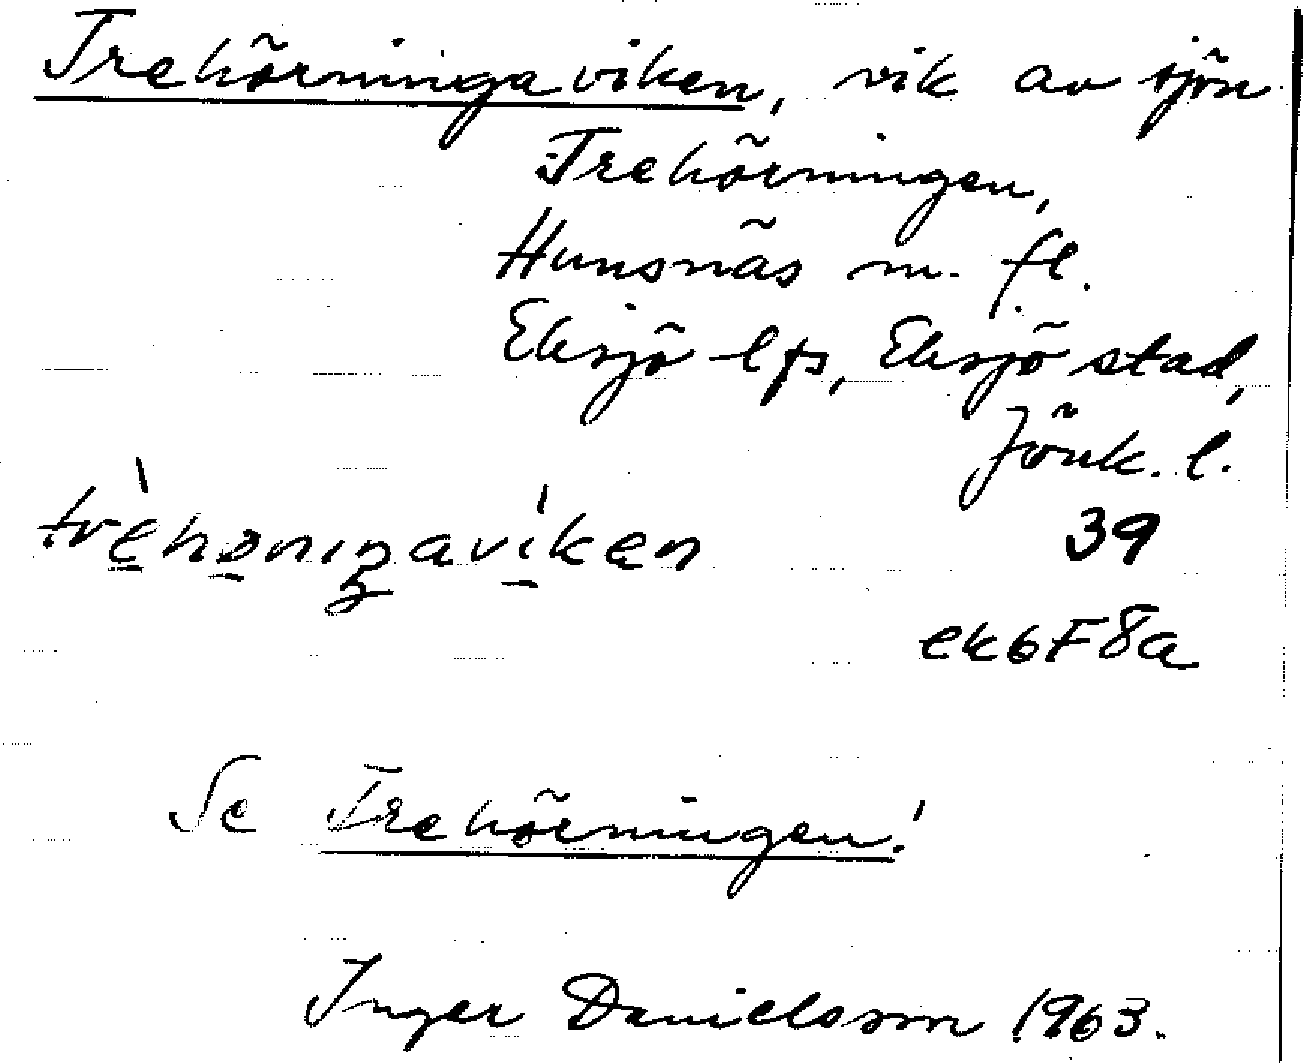 Trehörningaviken, vik av sjön
Trehörningen,
Hunsnäs m. fl.
Eksjö lfs, Eksjö stad,
Jönk. l.
trèhøningavíken 39
ek6F8a
Se Trehörningen!
Inger Danielsson 1963.